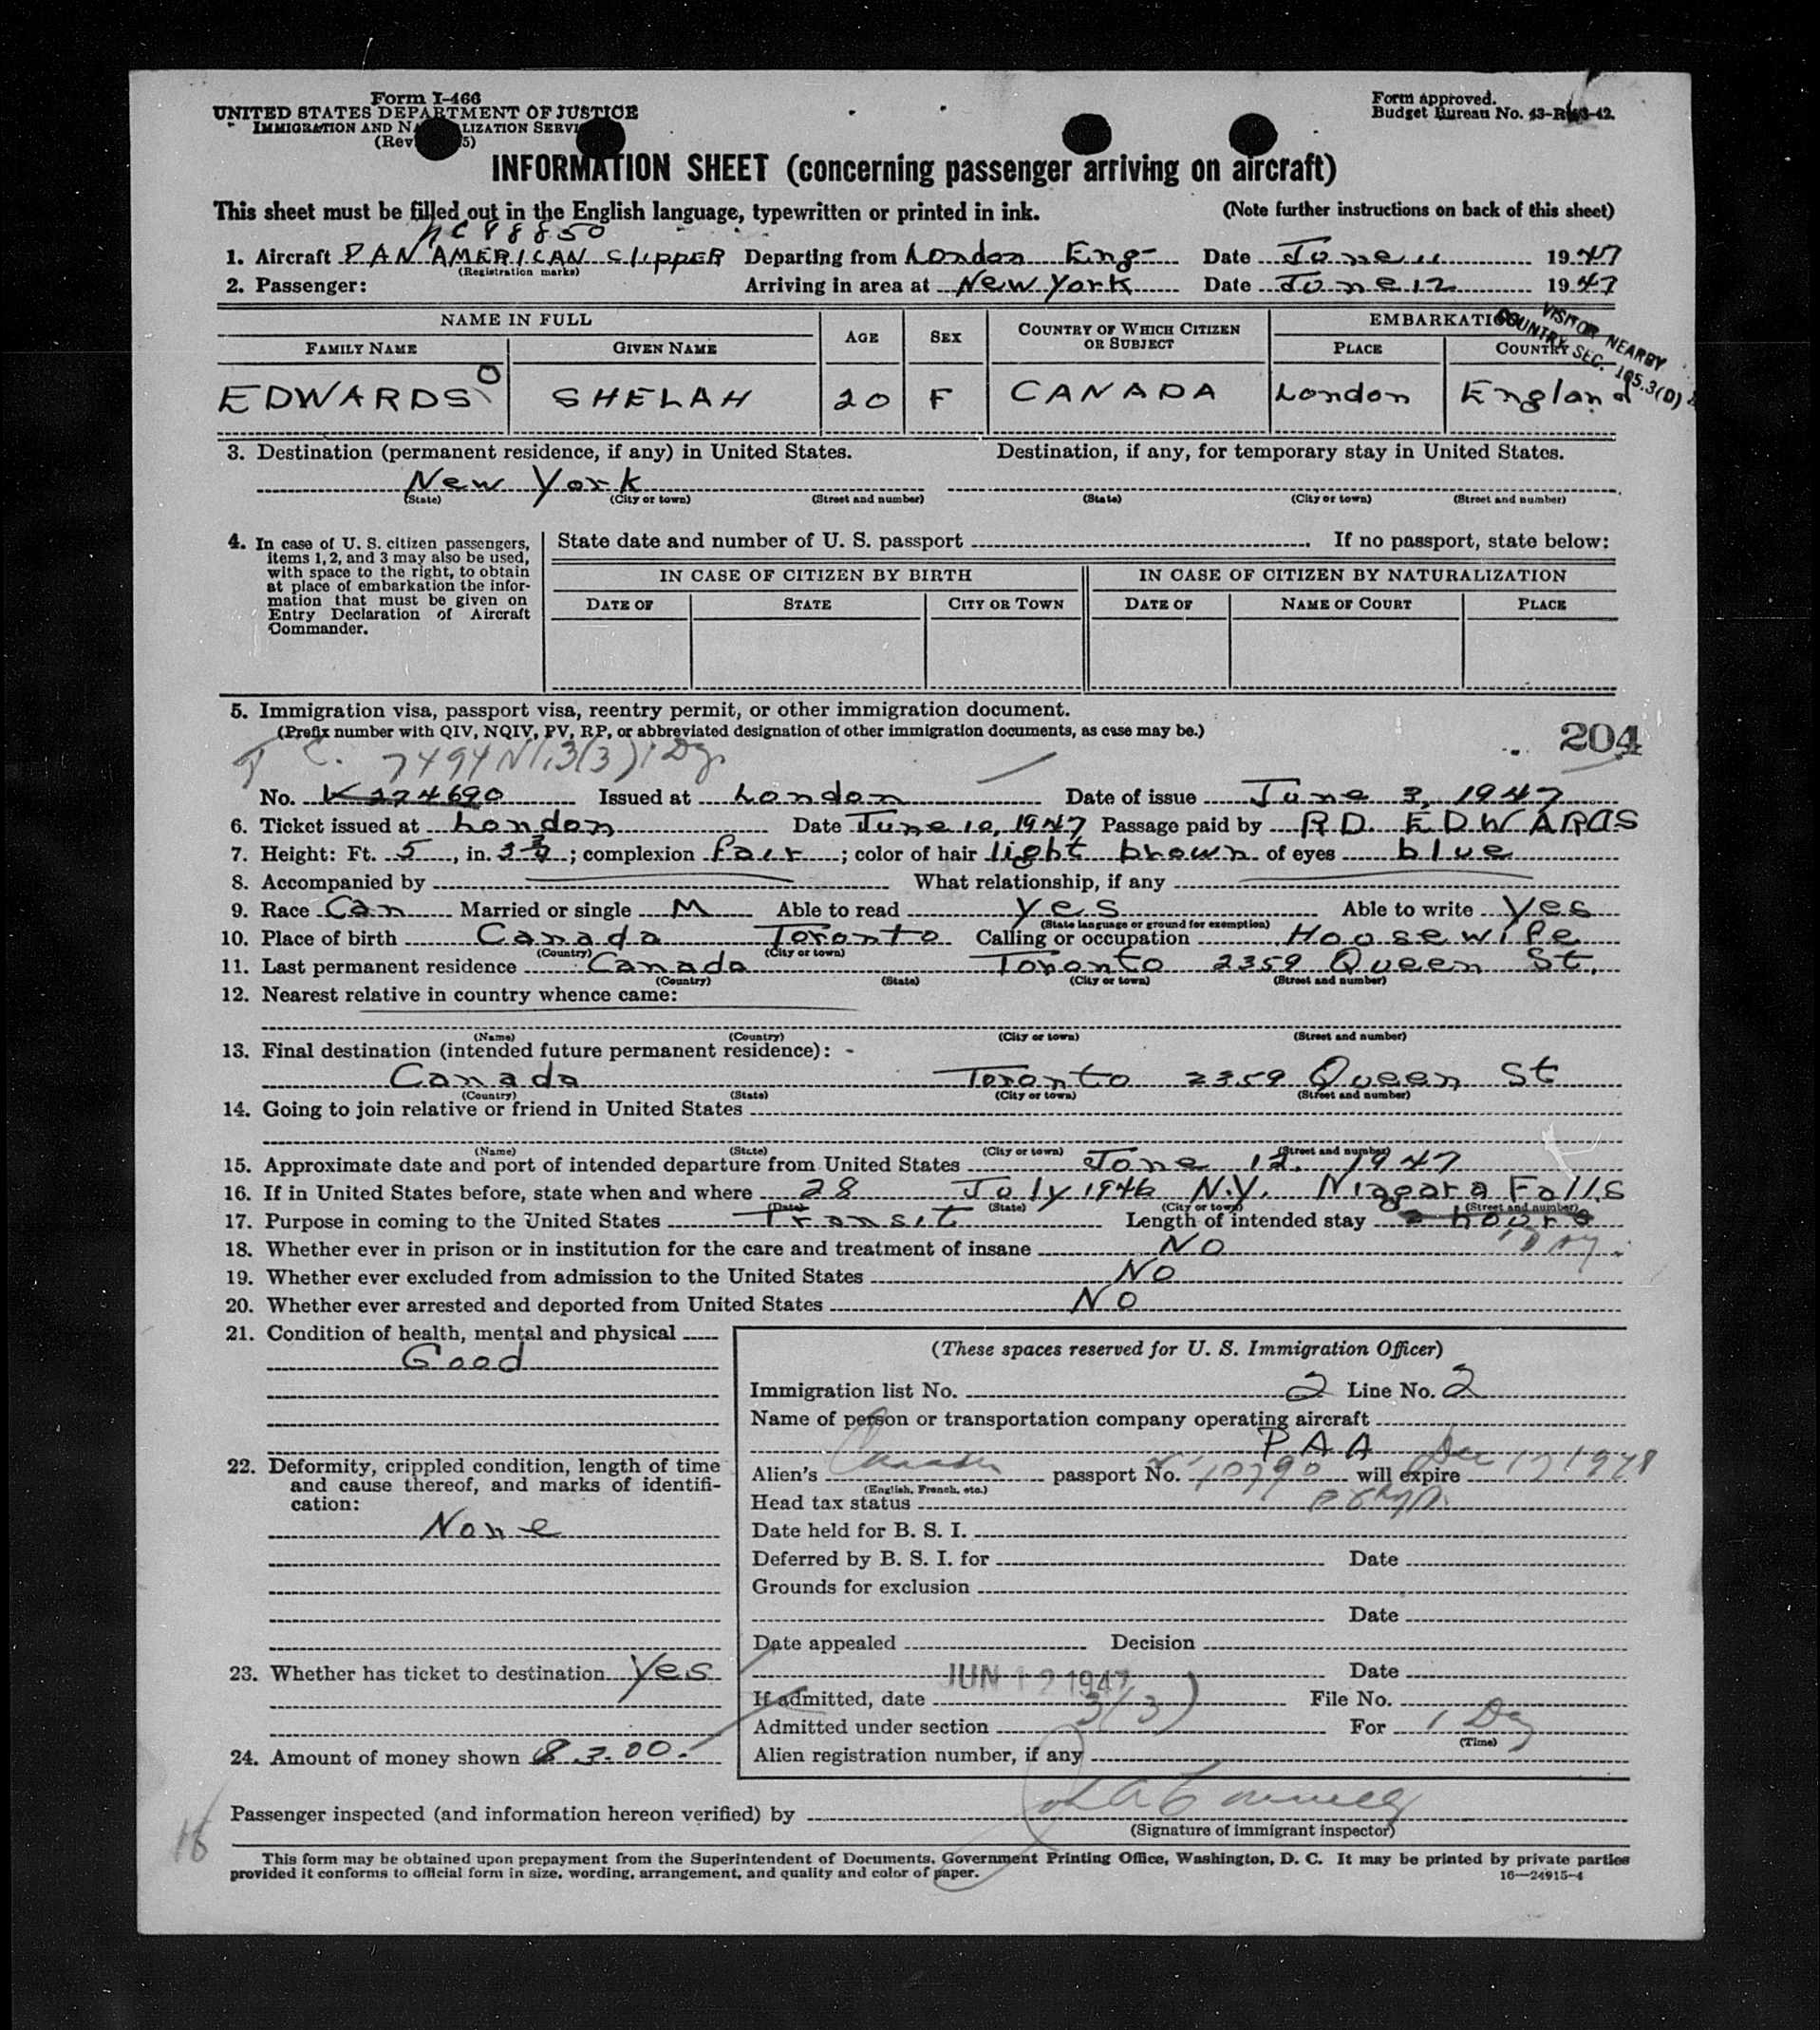 Form I-466
UNITED STATES DEPARTMENT OF JUSTICE
IMMIGRATION AND NATURALIZATION SERVICE
Form approved.
Budget Bureau No.
INFORMATION SHEET (concerning passenger arriving on aircraft)
This sheet must be filled out in the English language, typewritten or printed in ink. (Note further instructions on back of this sheet)
NC 88850
1. Aircraft PAN AMERICAN CLIPPER Departing from London Eng- Date June 11 1947
(Registration marks)
2. Passenger: Arriving in area at New York Date June 12 1947
VISITOR NEARBY
COUNTRY SEC. 165.3(D)
NAME IN FULL AGE SEX COUNTRY OF WHICH CITIZEN OR SUBJECT EMBARKATION
FAMILY NAME GIVEN NAME PLACE COUNTRY
EDWARDS SHELAH 20 F CANADA London England
3. Destination (permanent residence, if any) in United States. Destination, if any, for temporary stay in United States.
New York
(State) (City or town) (Street and number) (State) (City or town) (Street and number)
4. In case of U. S. citizen passengers, items 1, 2, and 3 may also be used, with space to the right, to obtain at place of embarkation the information that must be given on Entry Declaration of Aircraft Commander.
State date and number of U. S. passport If no passport, state below:
IN CASE OF CITIZEN BY BIRTH IN CASE OF CITIZEN BY NATURALIZATION
DATE OF STATE CITY OR TOWN DATE OF NAME OF COURT PLACE
5. Immigration visa, passport visa, reentry permit, or other immigration document.
(Prefix number with QIV, NQIV, PV, RP, or abbreviated designation of other immigration documents, as case may be.)
204
No. K 274690 Issued at London Date of issue June 3, 1947
6. Ticket issued at London Date June 10, 1947 Passage paid by R.D. EDWARDS
7. Height: Ft. 5, in. 3 3/4; complexion fair; color of hair light brown of eyes blue
8. Accompanied by What relationship, if any
9. Race Can Married or single M Able to read yes Able to write yes
(State language or ground for exemption)
10. Place of birth Canada Toronto Calling or occupation Housewife
(Country) (City or town)
11. Last permanent residence Canada Toronto 2359 Queen St.
(Country) (State) (City or town) (Street and number)
12. Nearest relative in country whence came:
(Name) (Country) (City or town) (Street and number)
13. Final destination (intended future permanent residence): -
Canada Toronto 2359 Queen St
(Country) (State) (City or town) (Street and number)
14. Going to join relative or friend in United States
(Name) (State) (City or town) (Street and number)
15. Approximate date and port of intended departure from United States June 12. 1947
16. If in United States before, state when and where 28 July 1946 N.Y. Niagara Falls
(Date) (State) (City or town) (Street and number)
17. Purpose in coming to the United States Transit Length of intended stay hours
1 Day
18. Whether ever in prison or in institution for the care and treatment of insane No
19. Whether ever excluded from admission to the United States No
20. Whether ever arrested and deported from United States No
21. Condition of health, mental and physical
Good
22. Deformity, crippled condition, length of time and cause thereof, and marks of identification:
None
23. Whether has ticket to destination Yes
24. Amount of money shown 83.00.
(These spaces reserved for U. S. Immigration Officer)
Immigration list No. 2 Line No. 2
Name of person or transportation company operating aircraft
PAA
Alien's passport No. 10790 will expire Dec 17 1948
(English, French, etc.)
Head tax status
Date held for B. S. I.
Deferred by B. S. I. for Date
Grounds for exclusion
Date
Date appealed Decision
Date
JUN 12 1947
If admitted, date File No.
Admitted under section 3(3) For 1 Day
(Time)
Alien registration number, if any
Passenger inspected (and information hereon verified) by
(Signature of immigrant inspector)
16
This form may be obtained upon prepayment from the Superintendent of Documents, Government Printing Office, Washington, D. C. It may be printed by private parties
provided it conforms to official form in size, wording, arrangement, and quality and color of paper. 16—24915-4